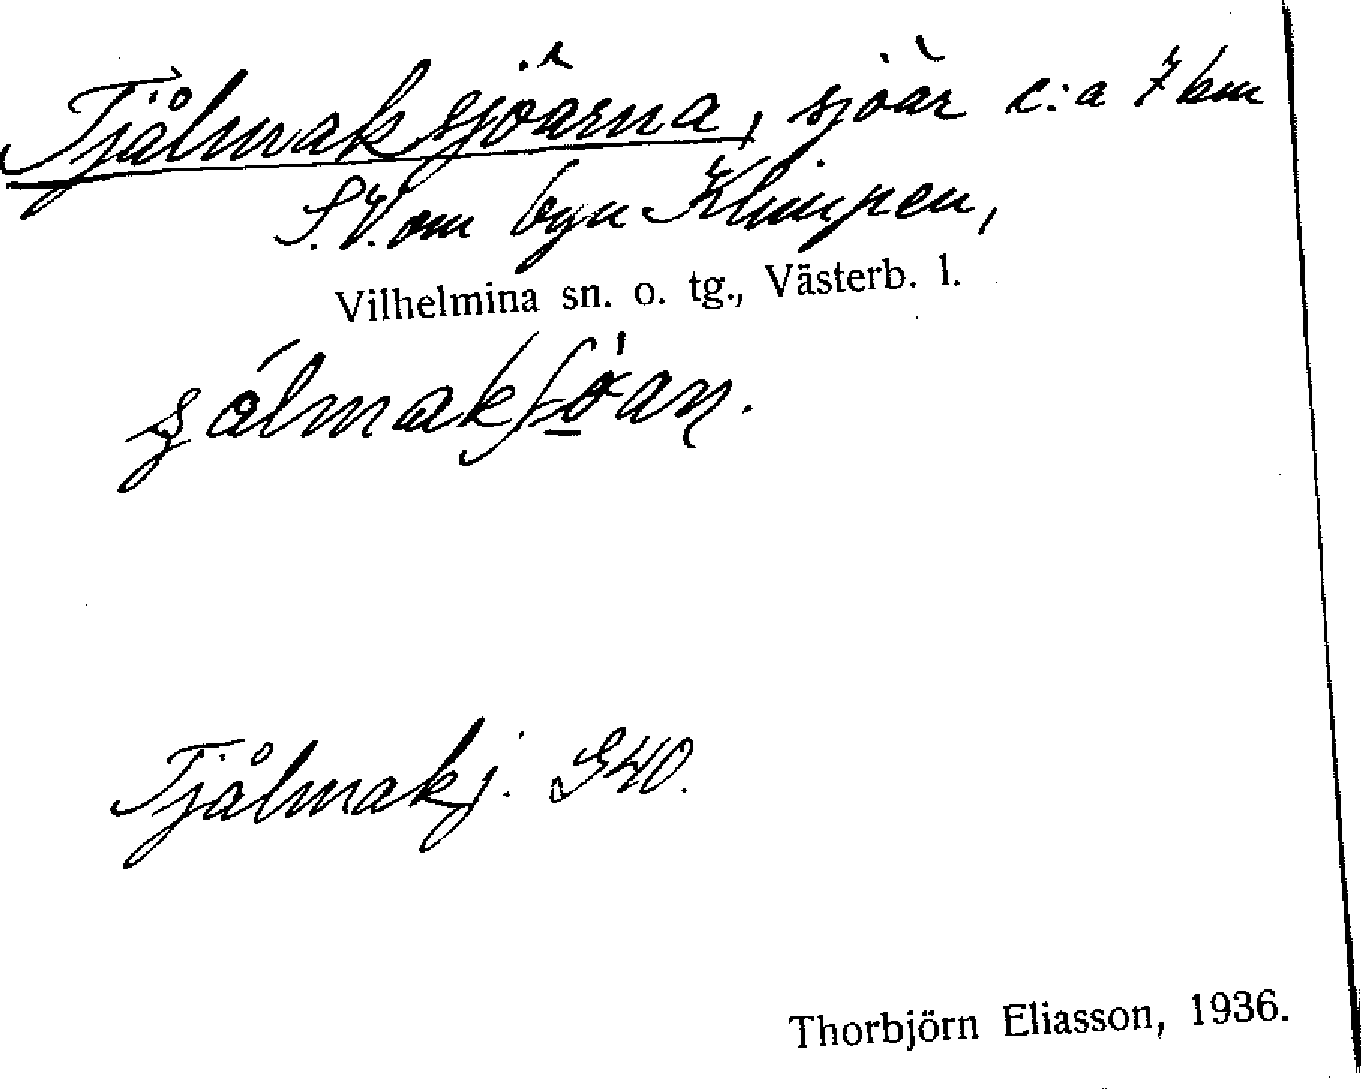 Tjålmaksjöarna, sjöar c:a 7 km
S.V. om byn Klimpen,
Vilhelmina sn. o. tg., Västerb. l.
Tjålmakj. G40.
Thorbjörn Eliasson, 1936.